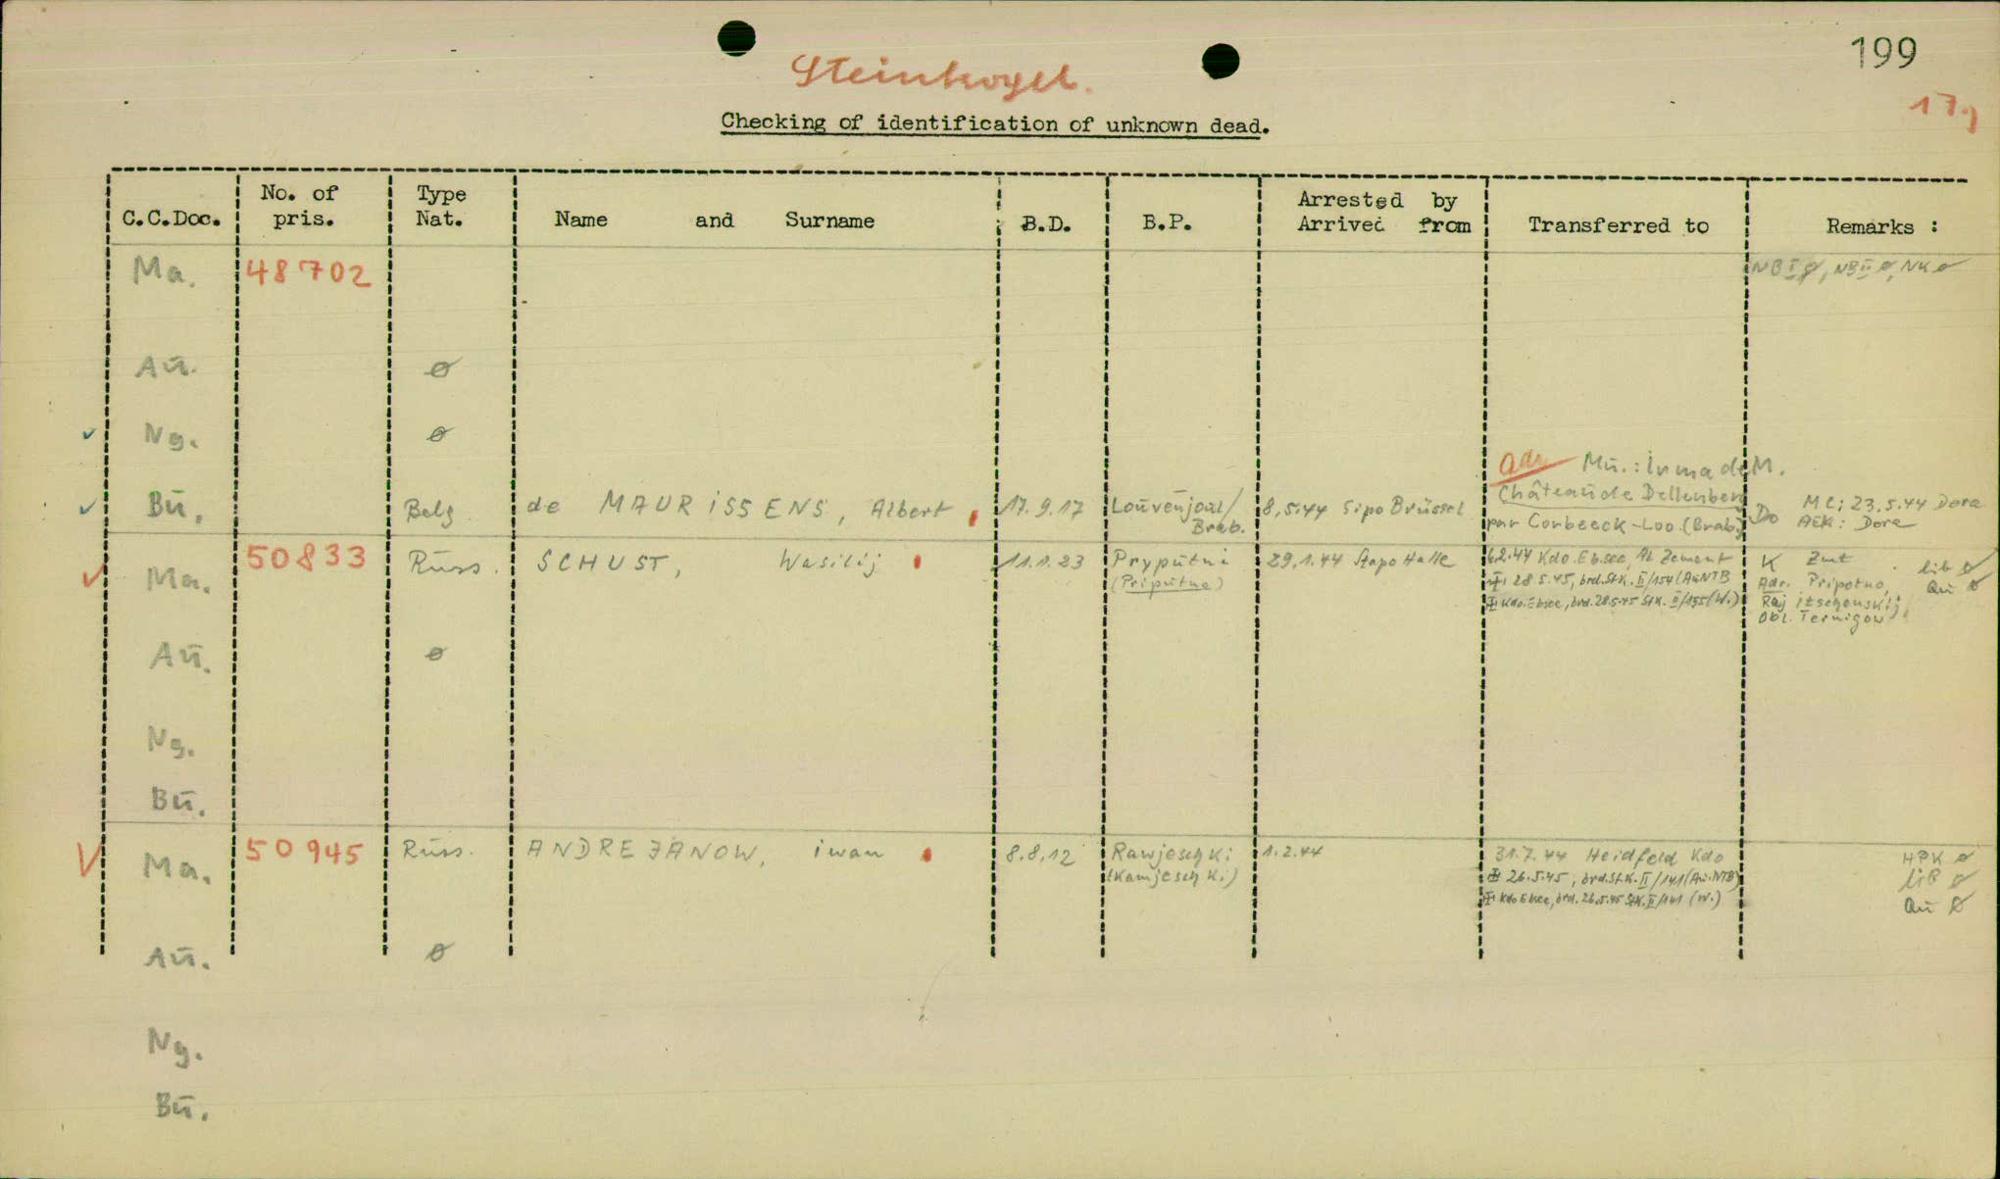 199
Steinkogel.
17.
Checking of identification of unknown dead.
C.C.Doc. No. of pris. Type Nat. Name and Surname B.D. B.P. Arrested by Arrived from Transferred to Remarks :
Ma. 48702 NB I ø, NB II ø, NK ø
Aū. ø
Ng. ø
adr Mū.: Irma de M.
Château de Dellenberg
Bū. Belg. de MAURISSENS, Albert 17.9.17 Louvenjoul/Brab. 8.5.44 Sipo Brüssel par Corbeeck-Loo (Brab.) Do ME: 23.5.44 Dora
AEK: Dora
Ma. 50833 Rūss. SCHUST, Wasilij 11.1.23 Pryputni (Priputne) 29.1.44 Stapo Halle 6.2.44 Kdo. Ebsee, Al. Zement K Zmt lib ø
28.5.45, brd. St.K. II/154 (AuNTB Adr. Pripotno, Qū ø
Kdo. Ebsee, brd. 28.5.45 St.K. II/155 (W.) Raj itschenskij
Obl. Ternigow
Aū. ø
Ng.
Bū.
Ma. 50945 Rūss. ANDREJANOW, iwan 8.8.12 Rawjeschki (Kamjeschki) 1.2.44 31.7.44 Heidfeld Kdo HPK ø
26.5.45, brd. St.K. II/141 (Au.NTB) LiB ø
Kdo Ebsee, brd. 26.5.45 St.K. II/141 (W.) Qū ø
Aū. ø
Ng.
Bū.